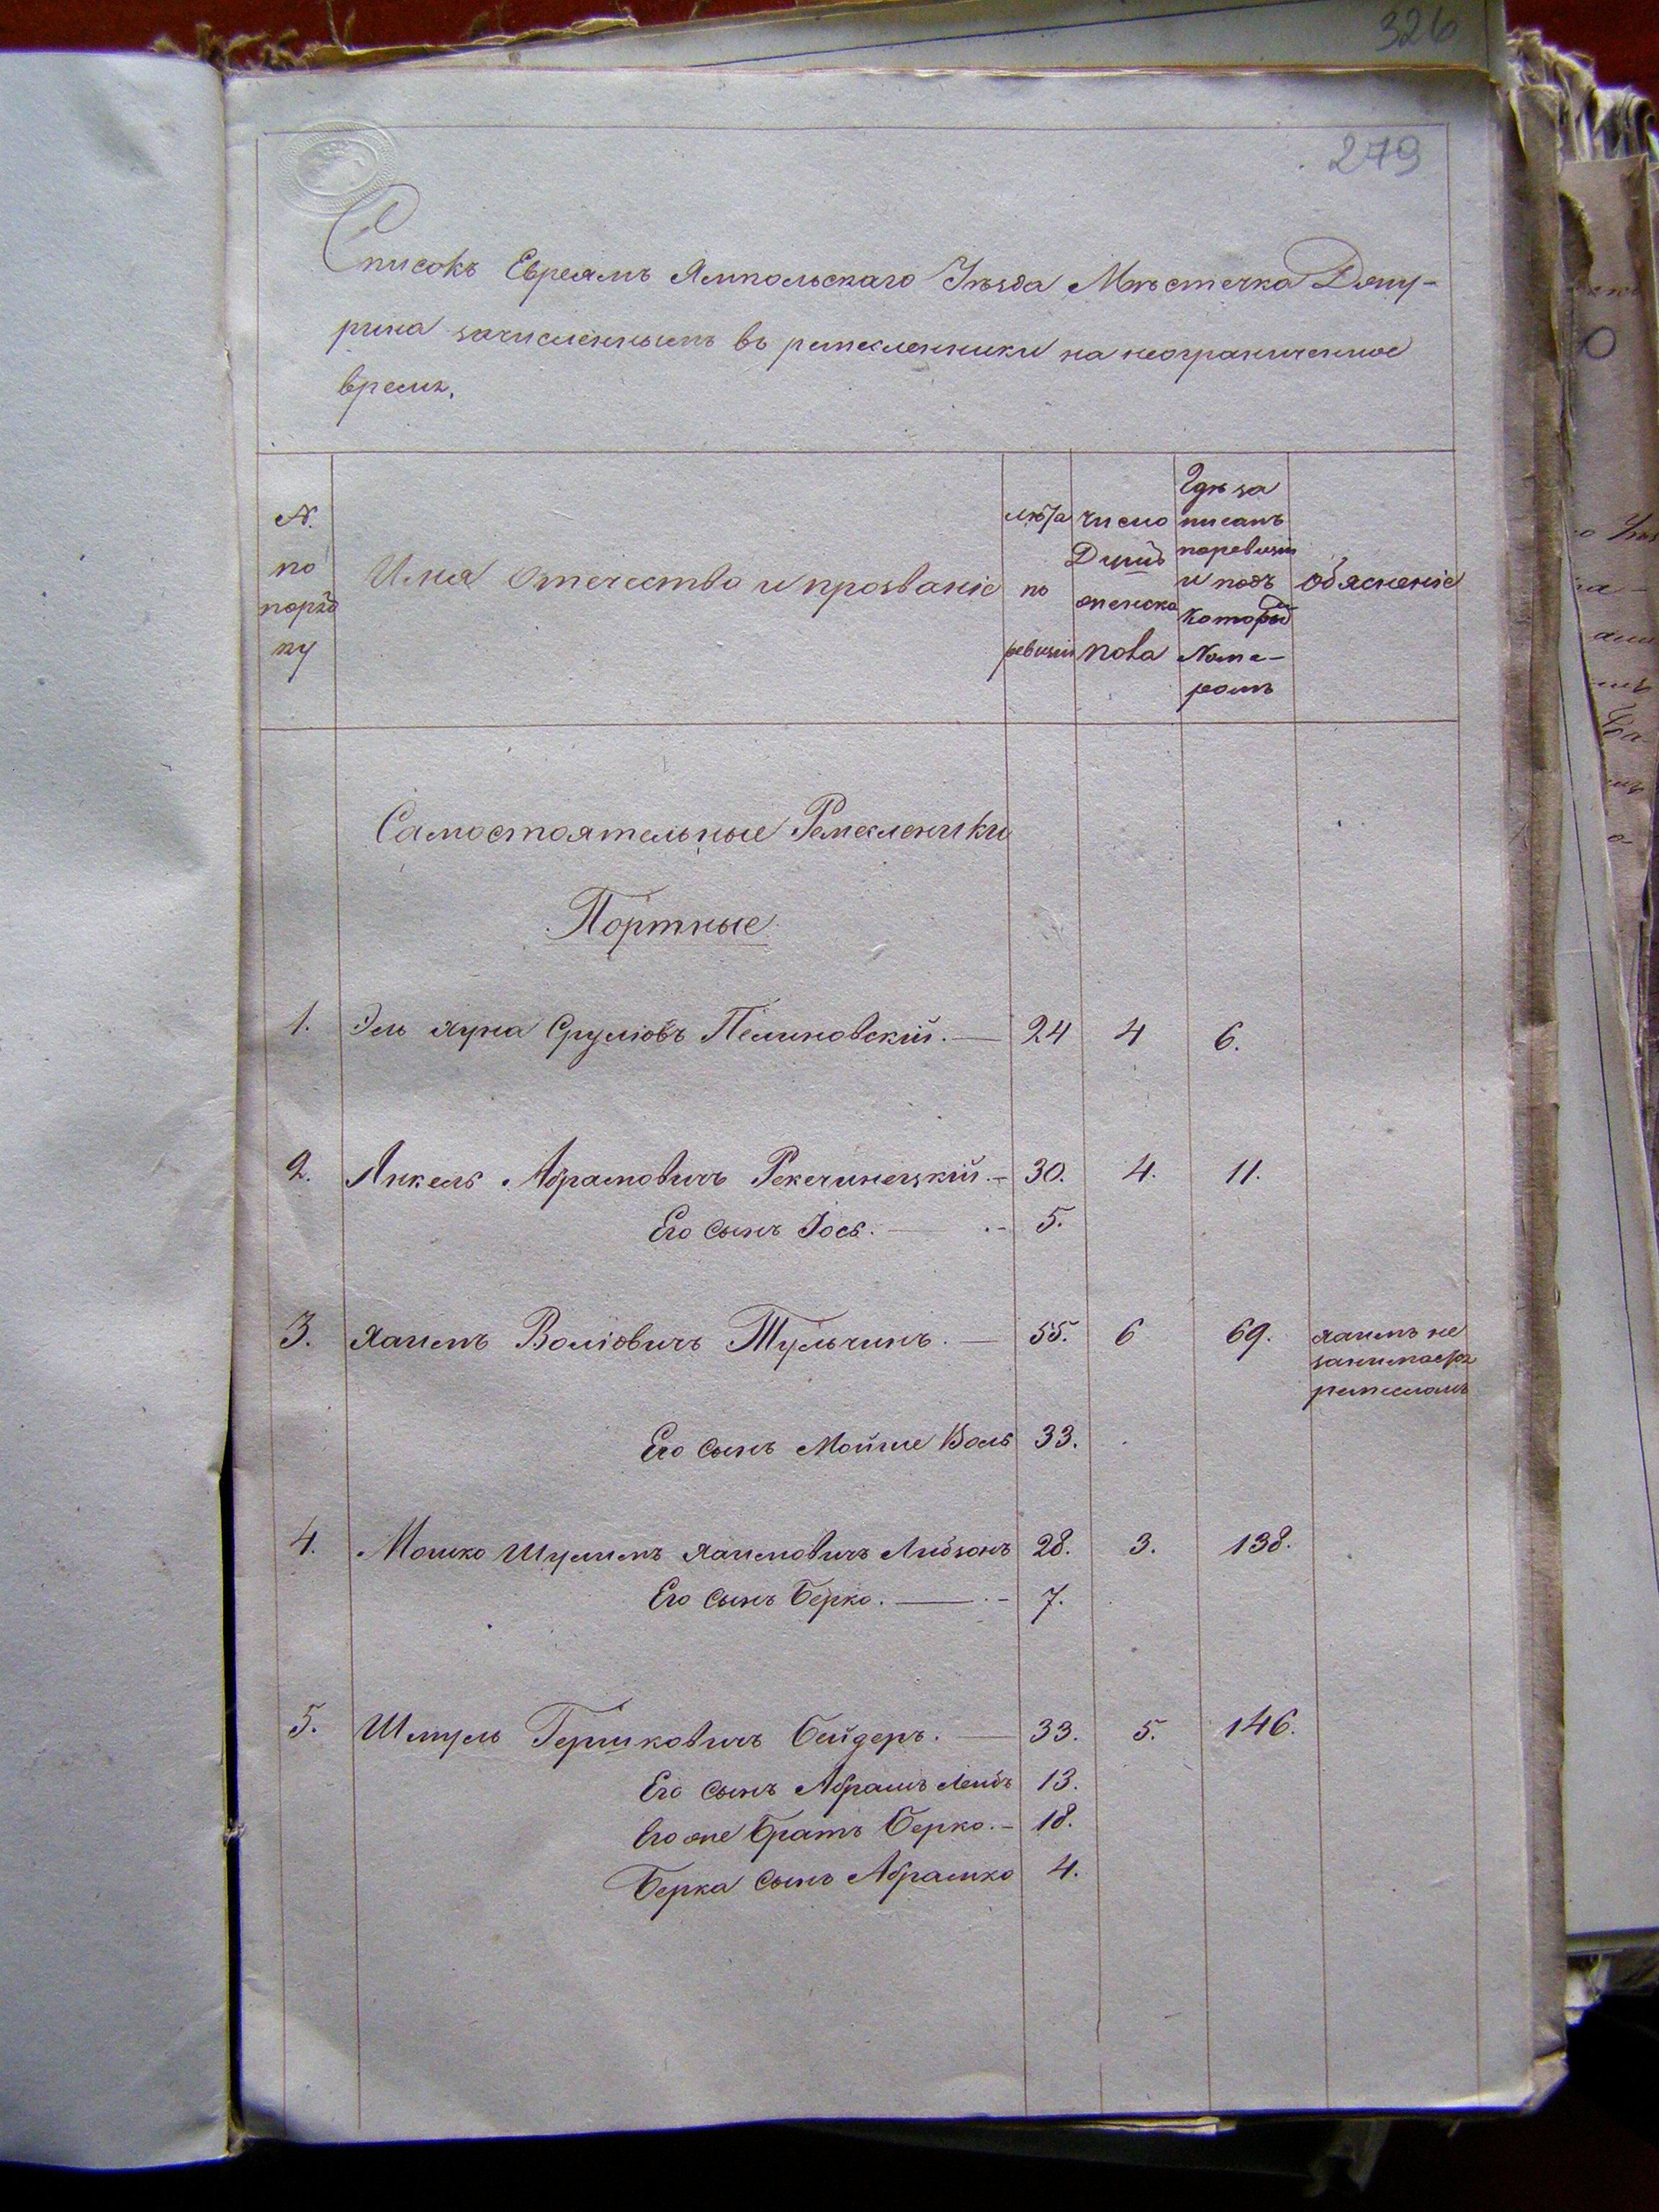 326
279
Списокъ Евреямъ Ямпольскаго Уѣзда Мѣстечка Джу-
рина зачисленнымъ въ ремесленники на неограниченное
время.
№ по порядку
Имя Отечество и прозваніе
лѣта по ревизіи
число Душъ женска пола
Гдѣ записанъ поревизіи и подъ которы Номе-ромъ
обясненіе
Самостоятельные Ремесленики
Портные
1. Эль Хуна Срулiовъ Пелиновскій. — 24 4 6.
2. Янкель Абрамовичъ Рекечинецкій. - 30. 4. 11.
Его сынъ Іось. — - 5.
3. Хаимъ Волiовичъ Тульчинъ. — 55. 6 69. Хаимъ не
занимаеся
ремесломъ
Его сынъ Мойше Воль 33.
4. Мошко Шулимъ Хаимовичъ Либзонъ 28. 3. 138.
Его сынъ Берко. — - 7.
5. Шмуль Гершковичъ Бейдеръ. — 33. 5. 146.
Его сынъ Абрамъ Лейбъ 13.
Его же братъ Берко. - 18.
Берка сынъ Абрамко 4.